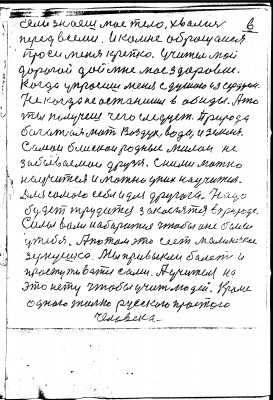 6
если знаеш мое тело, хвались
перед всеми. И комне обращайся
Проси меня крепко. Учитель мой
дорогой дой мне мое здоровие.
Когда упросиш меня с думою и сердцем.
Не когда не останиш в обиды. А то
ты получеш чего следует. Природа
богатая мать Воздух, вода, и земля.
Самои близкои родные милаи не
забываемаи друзя. С ними можно
научится и можно у них научится.
Для самого себя и для другога. Надо
будет трудится закоснятся в природе.
Силы вами набиратся чтобы они были
у тебя. А потом это сеет маленькае
зернушко. Мы привыкли балеть и
простуживатся сами. А учителя на
это нету чтобы учит людей. Кроме
одного этого русского простого
человека.